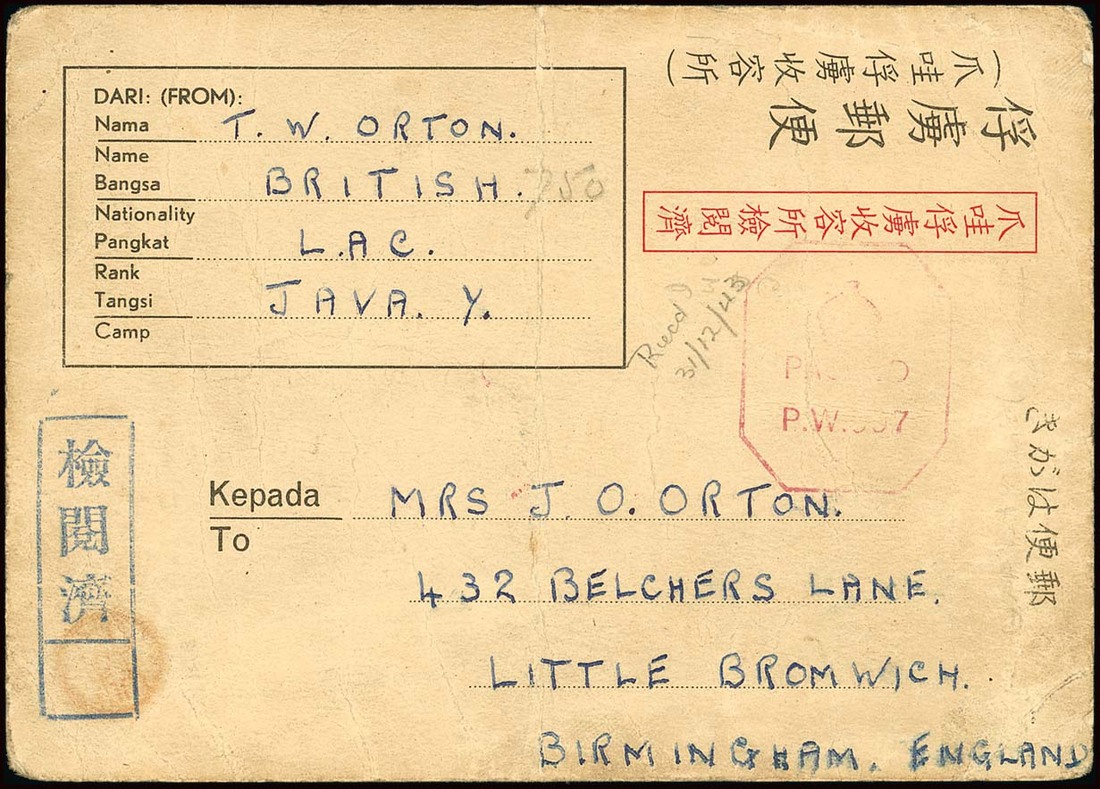 DARI: (FROM):
Nama T. W. ORTON.
Name
Bangsa BRITISH. 750
Nationality
Pangkat L.A.C.
Rank
Tangsi JAVA. Y.
Camp
(爪哇俘虜收容所)
俘虜郵便
爪哇俘虜收容所檢閱濟
Recd
31/12/43
PASSED
P.W.
郵便はがき
檢閱濟
Kepada MRS J. O. ORTON.
To
432 BELCHERS LANE.
LITTLE BROMWICH.
BIRMINGHAM. ENGLAND